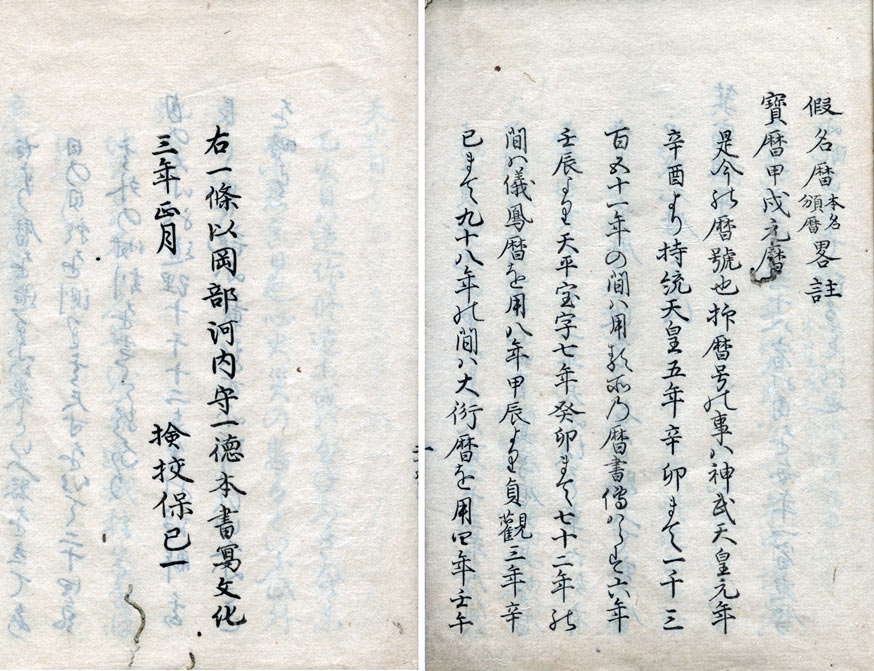 假名暦本名頒暦畧註
寶暦甲戌元暦
是今の暦號也抑暦号の事ハ神武天皇元年
辛酉より持統天皇五年辛卯まて一千三
百五十一年の間ハ用る所乃暦書傳ハらす六年
壬辰より天平宝字七年癸卯まて七十二年の
間ハ儀鳳暦を用八年甲辰より貞觀三年辛
巳まて九十八年の間ハ大衍暦を用四年壬午
右一條以岡部河内守一德本書冩文化
三年正月
検挍保己一